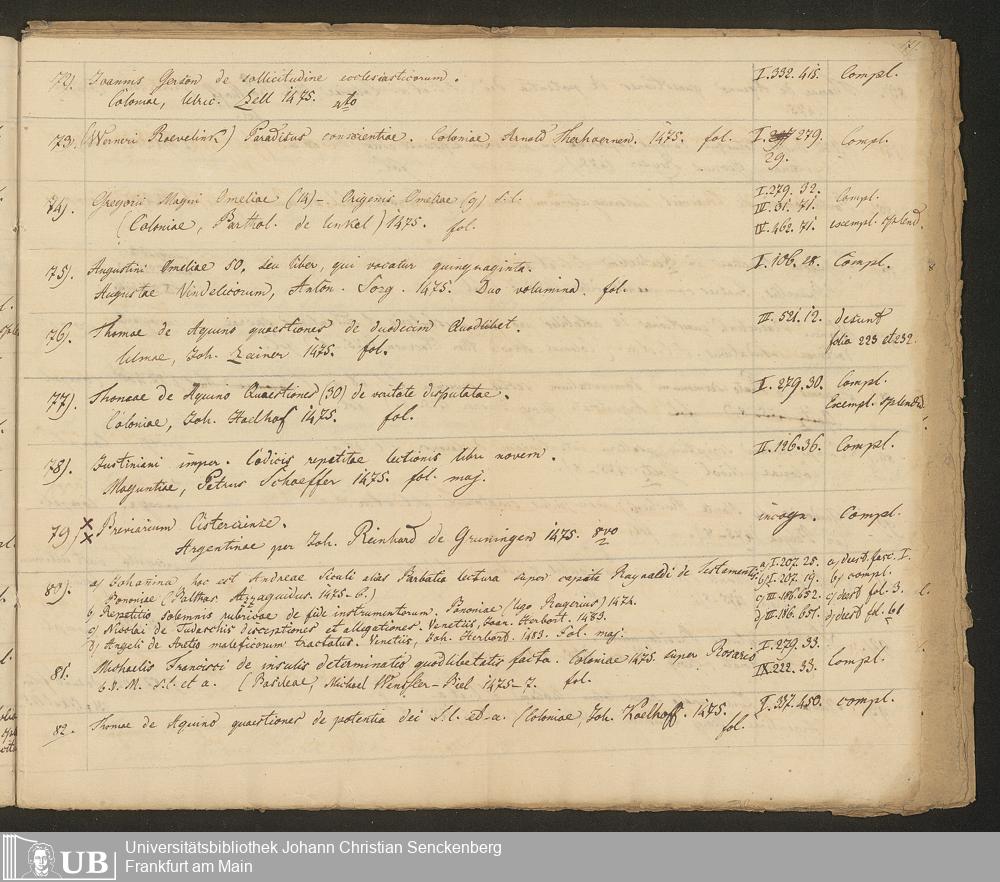 72). Joannis Gerson de sollicitudine ecclesiasticorum. I. 332. 415. Compl.
Coloniae, Ulric. Zell 1475. 4to
73. (Werneri Roevelink) Paradisus conscientiae. Coloniae, Arnold Therhoernen. 1475. fol. I. 279. Compl.
29.
74). Gregorii Magni Omeliae (14) – Origenis Omeliae (9) s.l. I. 279. 32. Compl.
III. 31. 71.
(Coloniae, Barthol. de Unkel) 1475. fol. IV. 462. 71. exempl. splend.
75). Augustini Omeliae 50, seu liber, qui vocatur quinquaginta. I. 106. 28. Compl.
Augustae Vindelicorum, Anton. Sorg. 1475. Duo volumina. fol.
76). Thomae de Aquino quaestiones de duodecim Quodlibet. III. 521. 12. desunt
Ulmae, Joh. Zainer 1475. fol. folia 223 et 232.
77). Thomae de Aquino Quaestiones (30) de veritate disputatae. I. 279. 30. Compl.
Coloniae, Joh. Koelhof 1475. fol. Exempl. splendid.
78). Justiniani imper. Codicis repetitae lectionis libri novem. II. 126. 36. Compl.
Moguntiae, Petrus Schoeffer 1475. fol. maj.
79) Breviarium Cisterciense. incogn. Compl.
Argentinae per Joh. Reinhard de Gruningen 1475. 8vo
80). a) Johanina, hoc est Andreae Siculi alias Barbatia lectura super capite Raynaldi de Testamentis a) I. 207. 25. a) dest. fasc. I.
Bononiae (Balthas. Azzaguidus. 1475–6.) b) I. 207. 19. b) compl.
b) Repetitio solemnis rubricae de fide instrumentorum. Bononiae (Ugo Rugerius) 1474. c) III. 186. 652. c) dest fol. 3.
c) Nicolai de Tudeschis disceptiones et allegationes. Venetiis, Joan. Herbort. 1483.
d) Angeli de Aretio maleficorum tractatus. Venetiis, Joh. Herbort. 1483. Fol. maj. d) III. 186. 651. d) dest fol. 61
81. Michaelis Francisci de insulis determinatio quodlibetalis facta. Coloniae 1475. super Rosario I. 279. 33.
B. V. M. s.l. et a. (Basileae, Michael Wenssler – Biel 1475–7. fol. IX. 222. 33. Compl.
82. Thomae de Aquino quaestiones de potentia dei s.l. et a. (Coloniae, Joh. Koelhoff. 1475. I. 37. 450. compl.
fol.
UB Universitätsbibliothek Johann Christian Senckenberg
Frankfurt am Main